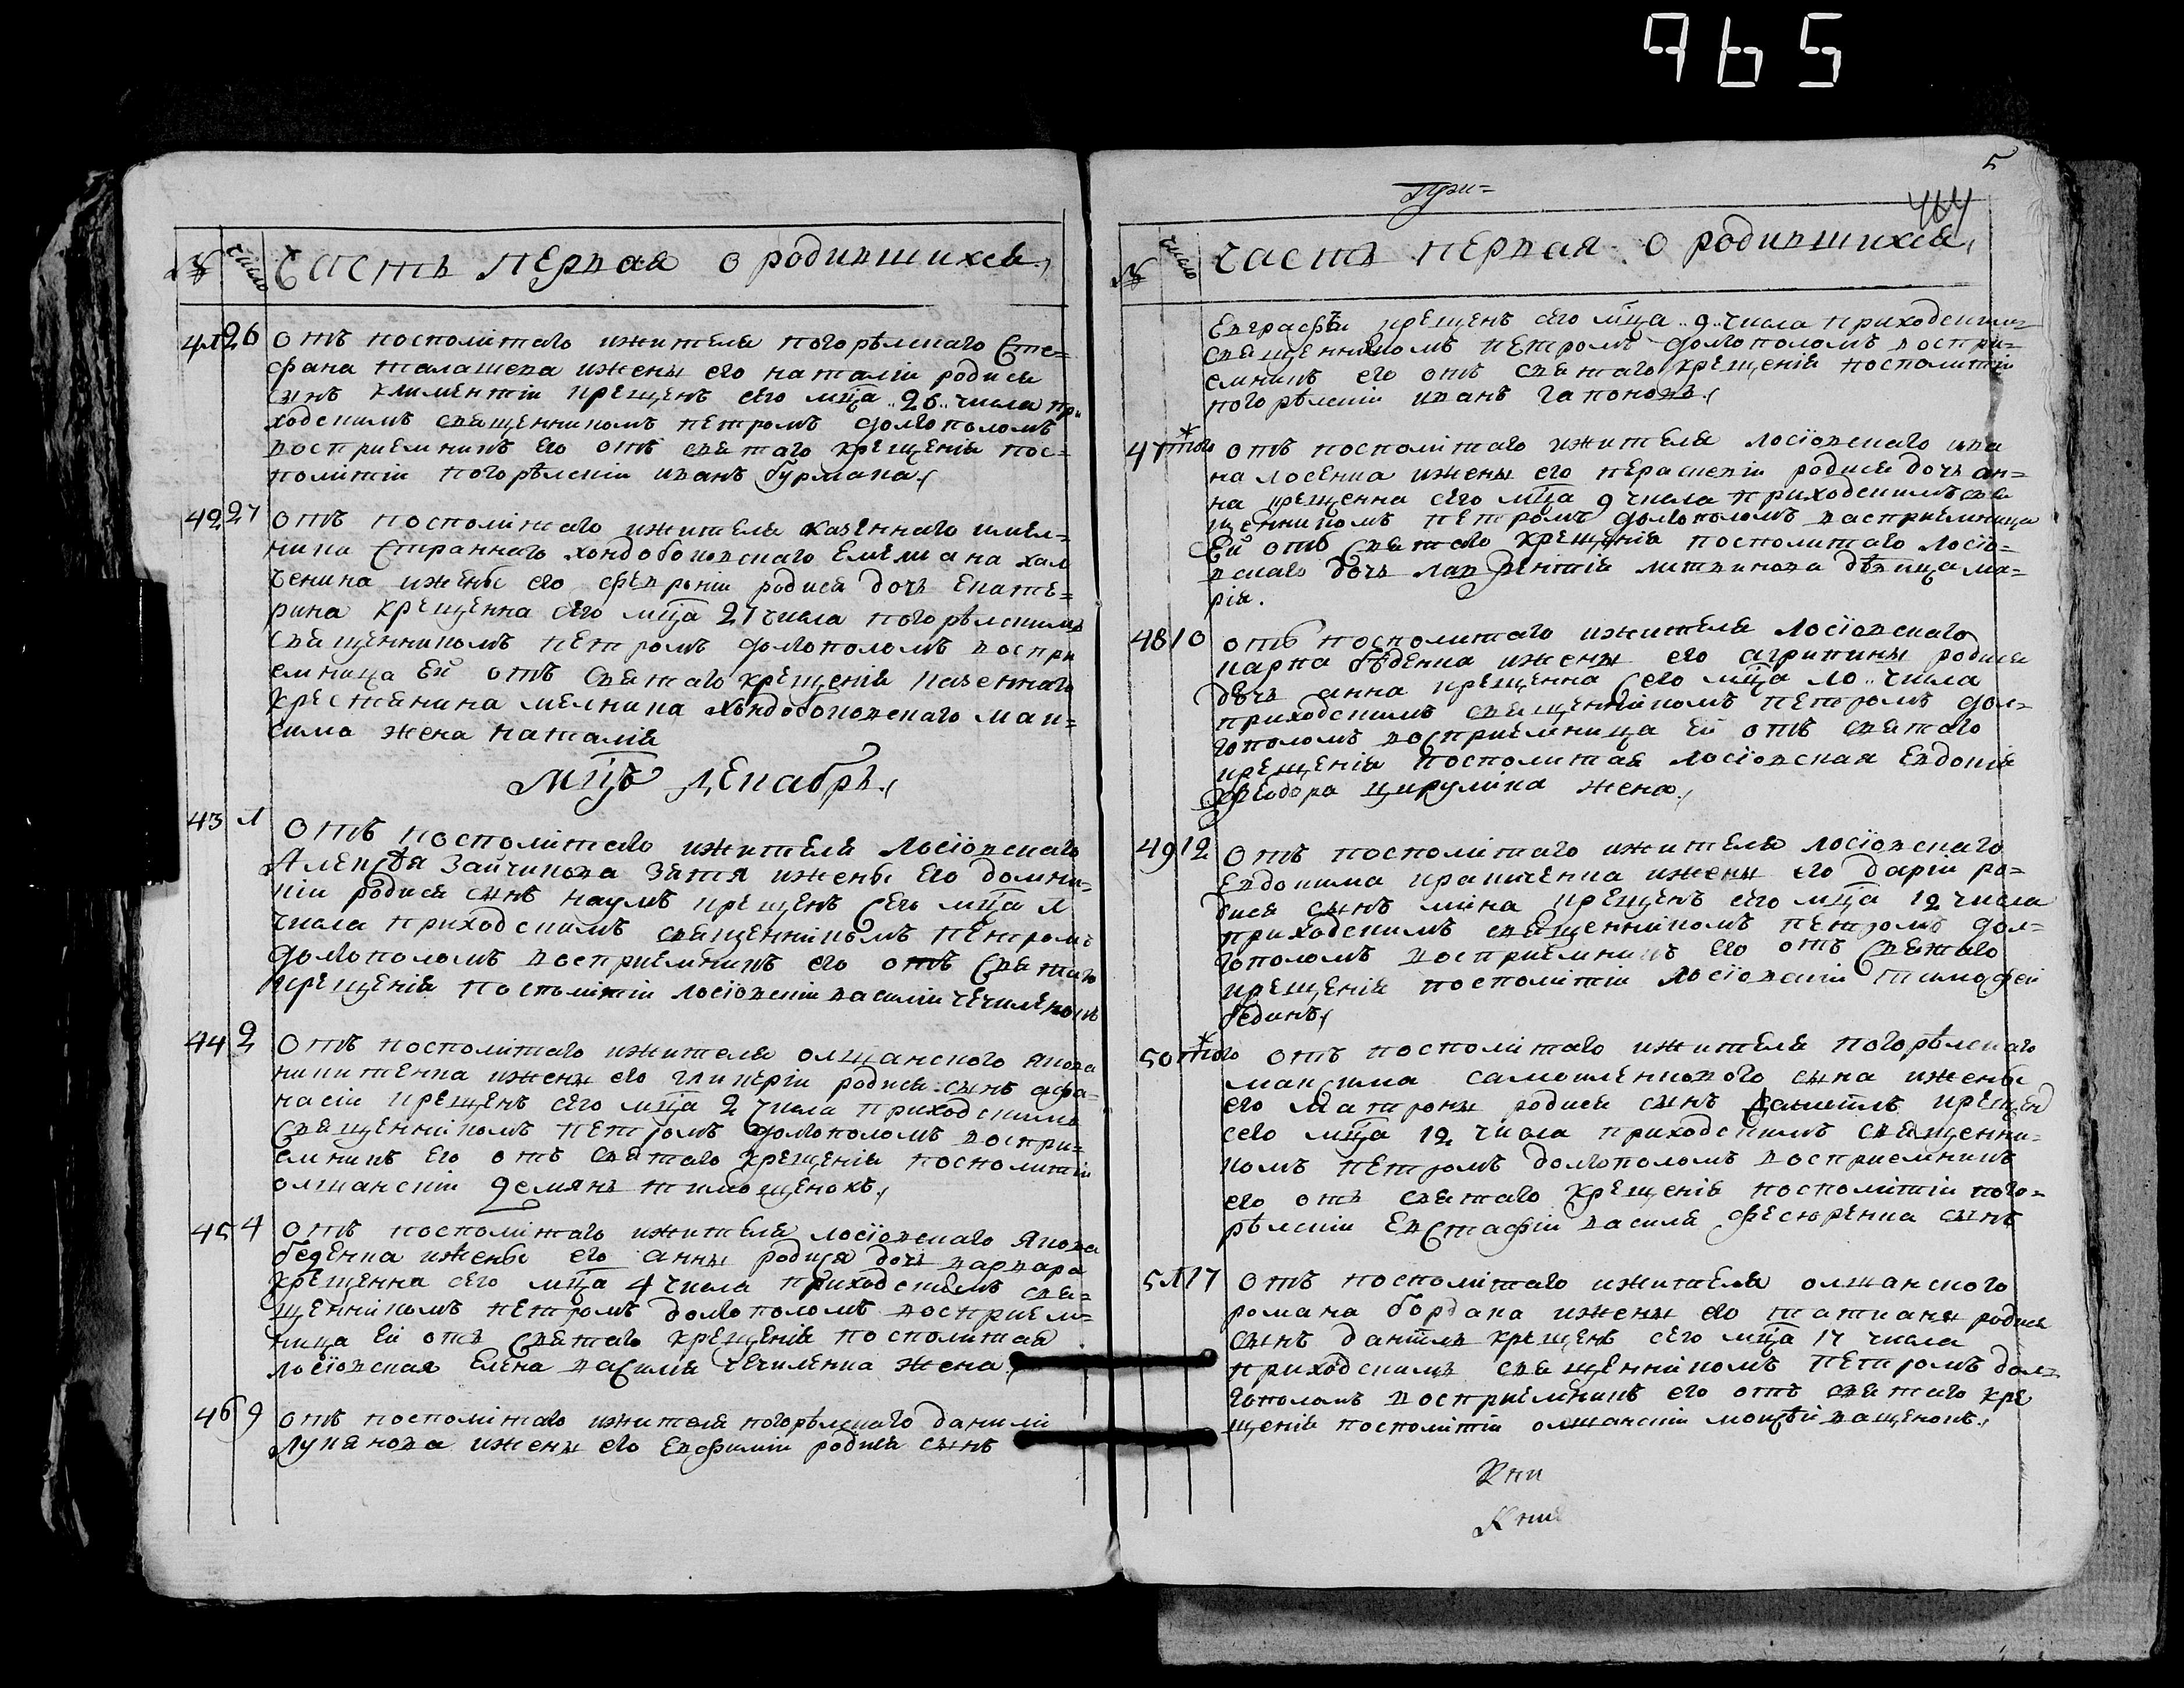 965
№ число Часть первая о родившихся
41 26 отъ посполитаго ижителя погорѣлского Сте=
фана талашева ижены его наталіи родися
сынъ климентіи крещенъ сего мца 26 числа при
ходскимъ священникомъ петромъ долгополомъ
восприемникъ его отъ святаго крещенія пос=
политіи погорѣлскіи иванъ бурмака
42 27 отъ посполитаго ижителя казенного
Странного хондобоковского Емелиана хал
ченика ижены его февроніи родися дочь екате=
рина крещенна сего мца 27 числа погорѣлскимъ
священникомъ петромъ долгополомъ воспри
емница ей отъ святаго крещенія казенного
крестянина мелника хондобоковского мак=
сима жена наталія
мцъ декабрь
43 1 отъ посполитаго ижителя лосіовского
Алексѣя Зайчикова зятя ижены его домни=
кіи родися сынъ наумъ крещенъ сего мца 1
числа приходскимъ священникомъ петромъ
долгополомъ восприемникъ его отъ святаго
крещенія посполитіи лосіовскіи василіи чечиленокъ
44 2 отъ посполитаго ижителя олшанского якова
никитенка ижены его гликеріи родися сынъ афа=
насіи крещенъ сего мца 2 числа приходскимъ
священникомъ петромъ долгополомъ воспри=
емникъ его отъ святаго крещенія посполитіи
олшанскіи демянъ тимощенокъ
45 4 отъ посполитаго ижителя лосіовского якова
беденка ижены его анны родися дочь варвара
крещенна сего мца 4 числа приходскимъ свя=
щенникомъ петромъ долгополомъ восприем=
ница ей отъ святаго крещенія посполитая
лосіовская елена василія чечиленка жена
46 9 отъ посполитаго ижителя погорѣлского данили
лукянова ижены его евфиміи родися сынъ
5
при=
414
№ число часть первая о родившихся
Евграфъ крещенъ сего мца 9 числа приходскимъ
священникомъ петромъ долгополомъ воспри=
емникъ его отъ святаго крещенія посполитіи
погорѣлскіи иванъ гапоновъ
47 того* отъ посполитаго ижителя лосіовского ива
на лосенка ижены его параскевіи родися дочь ан=
на крещенна сего мца 9 числа приходскимъ свя
щенникомъ петромъ долгополомъ восприемница
ей отъ святаго крещенія посполитаго лосіо=
вского дочь лаврентія литвинова дѣвица ма=
рія.
48 10 отъ посполитаго ижителя лосіовского
карпа бѣденка ижены его агрипины родися
дочь анна крещенна сего мца 10 числа
приходскимъ священникомъ петромъ дол=
гополомъ восприемница ей отъ святаго
крещенія посполитая лосіовская евдокія
феодора цирулика жена
49 12 отъ посполитаго ижителя лосіовского
Евдокима ижены его даріи ро=
дися сынъ мина крещенъ сего мца 12 числа
приходскимъ священникомъ петромъ дол=
гополомъ восприемникъ его отъ святаго
крещенія посполитіи лосіовскіи тимофеи
бединъ
50 того* отъ посполитаго ижителя погорѣлского
максима самошленкового сына ижены
его матроны родися сынъ даніилъ крещенъ
сего мца 12 числа приходскимъ священни=
комъ петромъ долгополомъ восприемникъ
его отъ святаго крещенія посполитіи пого=
рѣлскіи евстафіи василя фесюренка сынъ
51 17 отъ посполитаго ижителя олшанского
романа бордака ижены его татианы родися
сынъ даніилъ крещенъ сего мца 17 числа
приходскимъ священникомъ петромъ дол=
гополомъ восприемникъ его отъ святаго кре
щенія посполитіи олшанскіи моисѣи ващенокъ